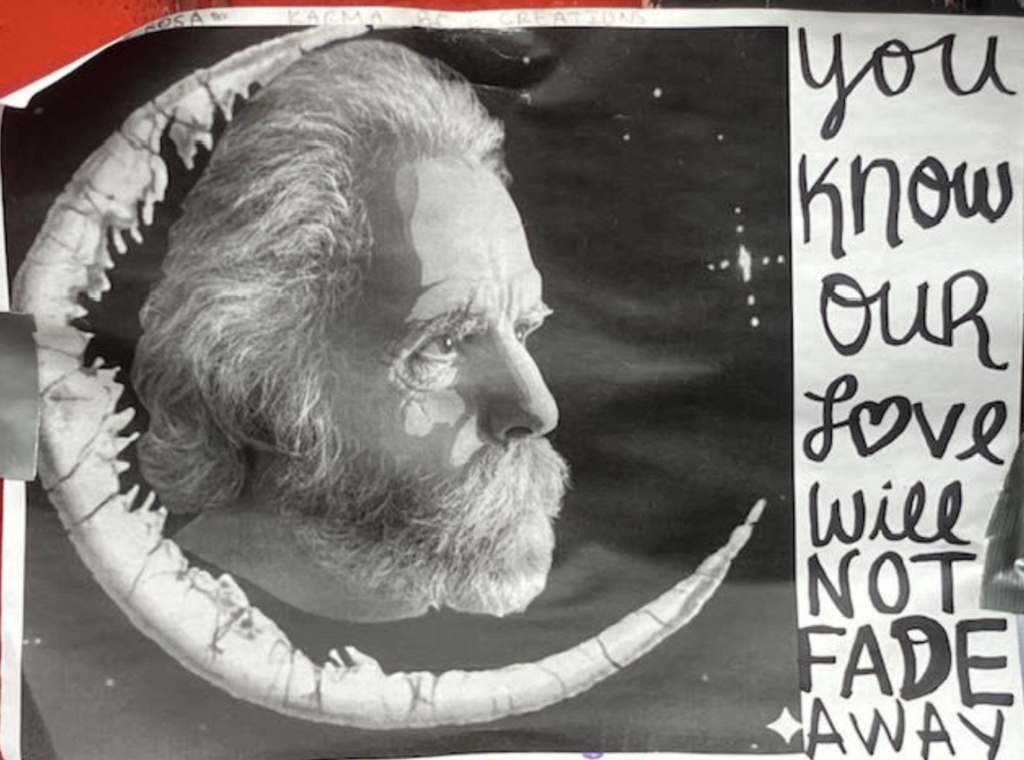 KARMA BEE CREATIONS
you
KNOW
OUR
Love
Will
NOT
FADE
AWAY